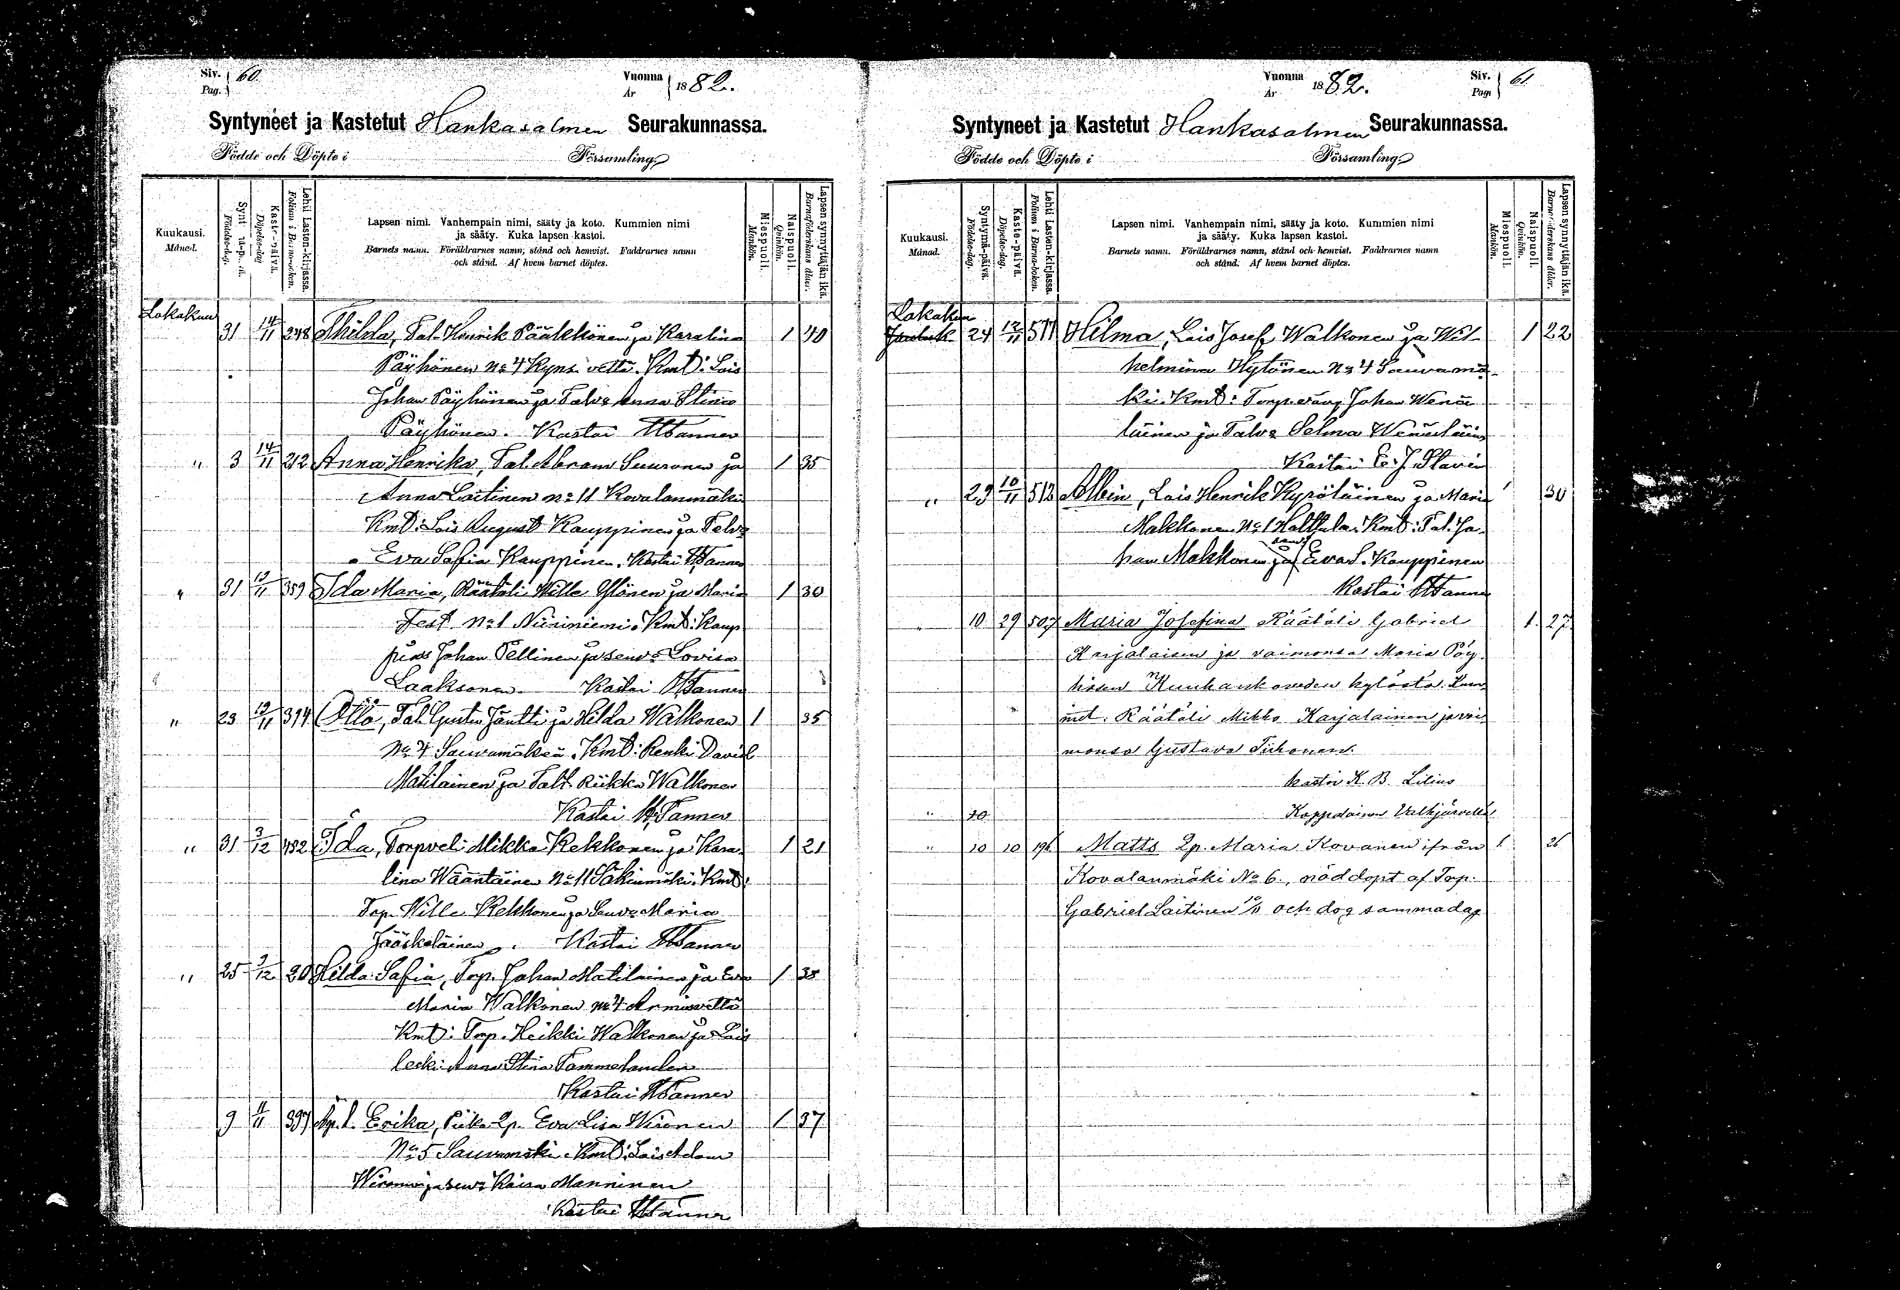 Siv. Pag. } 60.
Vuonna År } 1882.
Syntyneet ja Kastetut Hankasalmen Seurakunnassa.
Födde och Döpte i Församling
Kuukausi. Månad.
Födelse-dag.
Kaste-päivä. Döpelse-dag
Lehti Lasten-kirjassa. Folium i Barna-boken.
Lapsen nimi. Vanhempain nimi, sääty ja koto. Kummien nimi
ja sääty. Kuka lapsen kastoi.
Barnets namn. Föräldrarnes namn, stånd och hemvist. Faddrarnes namn
och stånd. Af hvem barnet döptes.
Miespuoli. Mankön.
Naispuoli. Qvinkön.
Lapsen synnyttäjän ikä. Barnaföderskans ålder.
Lokakuu 31 14/11 248 Thilda, Tal. Henrik Pääkkönen ja Karalina 1 40
Päyhönen No 4 Kyns vettä. Kmt: Lois
Johan Päyhönen ja Talv: Anna Stina
Päyhönen. Kastai Tanner
" 3 14/11 212 Anna Henrika, Tal. Abram Suuronen ja 1 35
Anna Laitinen No 11 Kovalanmäki
Kmt: Lois August Kauppinen ja Talv:
Eva Safia Kauppinen. Kastai Tanner
" 31 12/11 359 Ida Maria, Räätäli Wille Ylönen ja Maria 1 30
Fest No 1 Niininiemi. Kmt: Kaup
Johan Tellinen ja Lovisa
Laaksonen. Kastai Tanner
" 23 12/11 394 Otto, Tal. Gustav Jäntti ja Hilda Walkonen 1 35
No 4 Sauvamäki. Kmt: Renki David
Matilainen ja Talt. Riikka Walkonen
Kastai Tanner
" 31 3/12 432 Ida, Torpveli Mikko Kekkonen ja Kara-
lina Wääntäinen No 11 Säkinmäki. Kmt: 1 21
Torp. Wille Kekkonen ja Sauv: Maria
Jääskeläinen. Kastai Tanner
" 25 3/12 20 Hilda Safia, Torp. Johan Matilainen ja Eva 1 35
Maria Walkonen No 4 Armisvettä
Kmt: Torp. Heikki Walkonen ja Lois
leski Anna Stina Tammelander
Kastai Tanner
9 11/11 397 Äp. l. Erika, Piika Qp. Eva Lisa Wironen 1 37
No 5 Sauvamäki. Kmt: Lois Adam
Wironen ja Kaisa Manninen
Kastai Tanner
Vuonna År } 1882.
Siv. Pag. } 61
Syntyneet ja Kastetut Hankasalmen Seurakunnassa.
Födde och Döpte i Församling
Kuukausi. Månad.
Syntymä-päivä. Födelse-dag.
Kaste-päivä. Döpelse-dag.
Lehti Lasten-kirjassa. Folium i Barna-boken.
Lapsen nimi. Vanhempain nimi, sääty ja koto. Kummien nimi
ja sääty. Kuka lapsen kastoi.
Barnets namn. Föräldrarnes namn, stånd och hemvist. Faddrarnes namn
och stånd. Af hvem barnet döptes.
Miespuoli. Mankön.
Naispuoli. Qvinkön.
Lapsen synnyttäjän ikä. Barnaföderskans ålder.
Lokakuu
24 12/11 511 Hilma, Lois Josef Walkonen ja Wil- 1 22
helmina Hytönen No 4 Sauvamä-
ki. Kmt: Johan Wenä
läinen ja Talv: Selma Wenäläinen
Kastai E. J. Slavén
" 29 10/11 513 Albin, Lois Henrik Kyröläinen ja Maria 1 30
Makkonen No 1 Halttula. Kmt: Tal. Jo-
han Makkonen ja Eva S. Kauppinen
Kastai Tanner
" 10 29 507 Maria Josefina Räätäli Gabriel 1 27
Karjalaisen ja vaimonsa Maria Pöy
hösen Kuuhankaveden kylästä. Kum
mit. Räätäli Mikko Karjalainen ja vai
monsa Gustava Tiihonen.
kastoi K. B. Lilius
" 20 Kappalainen Valkjärvellä
" 10 10 196 Matts Qp. Maria Kovanen ifrån 1 26
Kovalanmäki No 6., nöddöpt af Torp.
Gabriel Laitinen 10/11 och dog sammadag